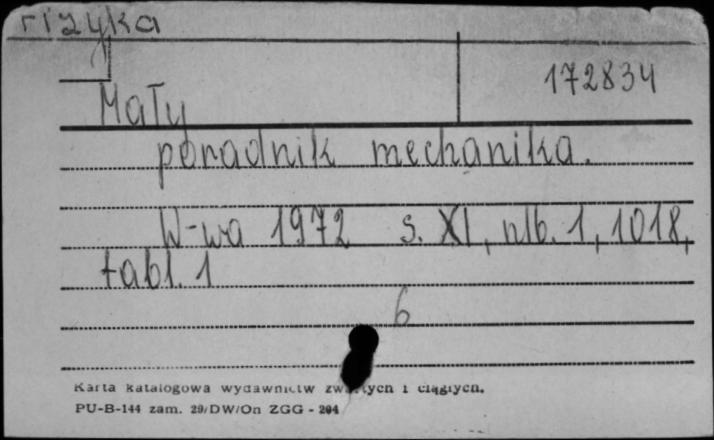 fizyka
172834
Mały
poradnik mechanika.
W-wa 1972 s. XI, nlb. 1, 1018,
tabl. 1
6
Karta katalogowa wydawnictw zwartych i ciągłych.
PU-B-144 zam. 29/DW/On ZGG - 204